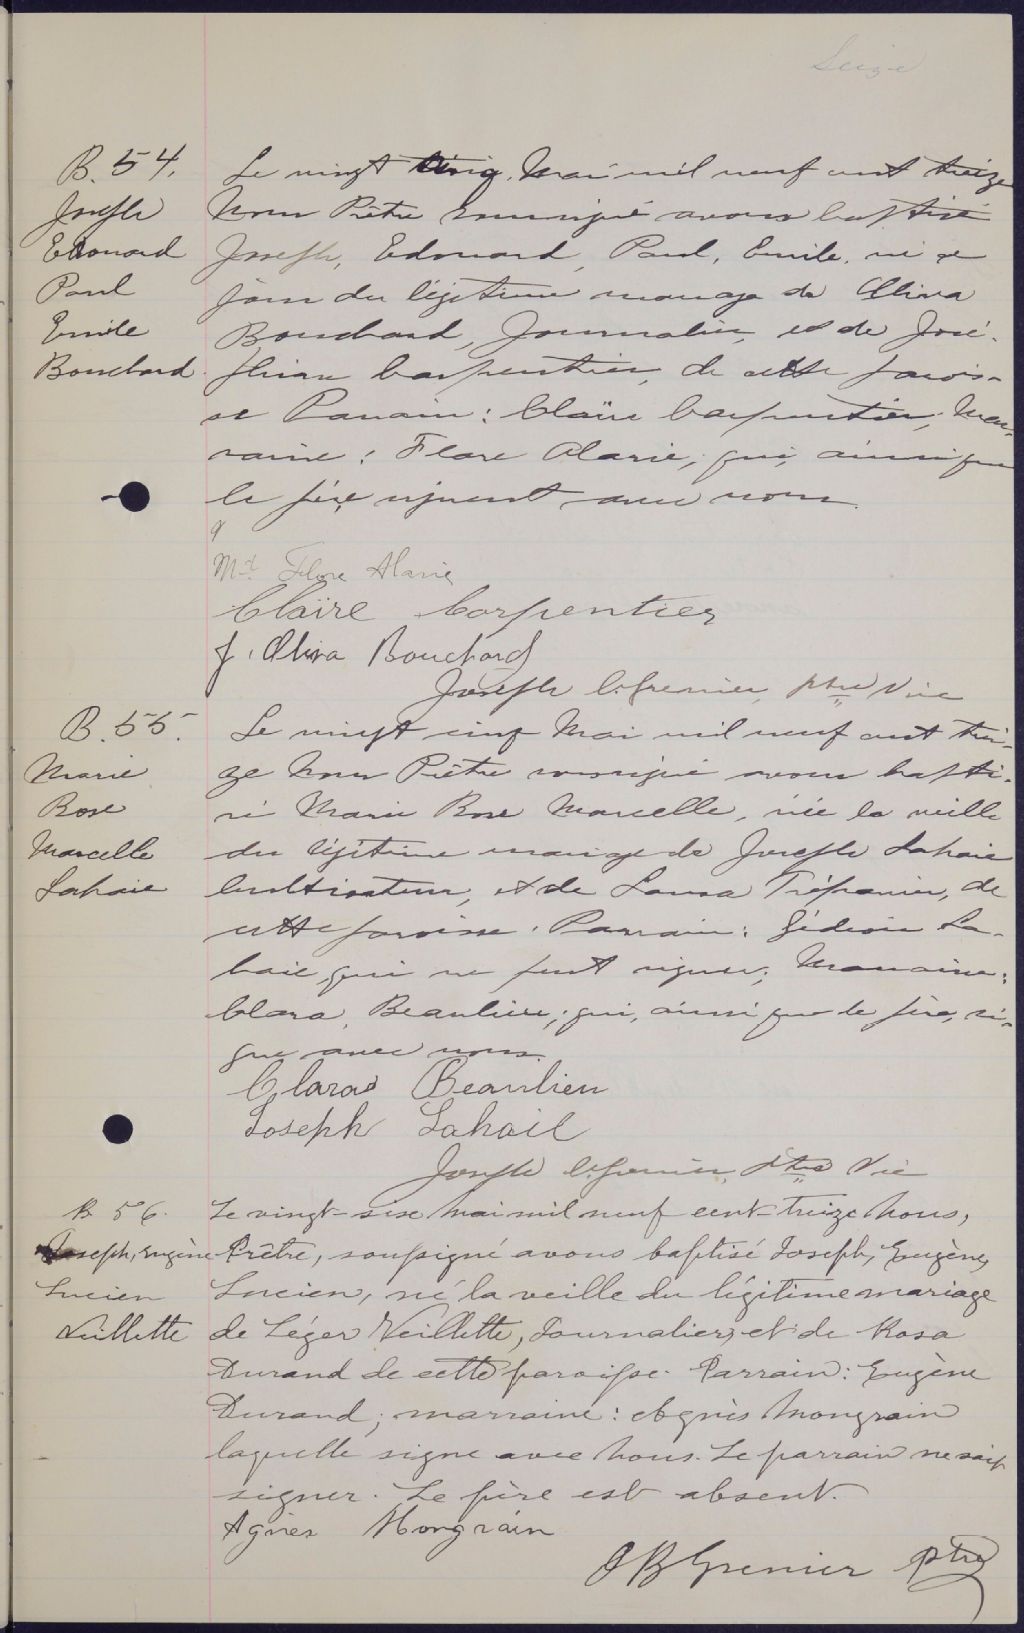 Seize
B. 54.
Joseph
Edouard
Paul
Emile
Bouchard
Le vingt cinq Mai mil neuf cent treize
Nous Prêtre soussigné avons baptisé
Joseph, Edouard, Paul, Emile, né ce
jour du légitime mariage de Oliva
Bouchard, Journalier, et de José-
phine Carpentier, de cette parois-
se Parrain: Claïre Carpentier, Mar-
raine: Flore Alarie, qui, ainsi que
le père signent avec nous.
Md. Flore Alarie
Claïre Carpentier
J. Oliva Bouchard
Joseph C. Grenier, ptre Vic
B. 55.
Marie
Rose
Marcelle
Lahaie
Le vingt cinq Mai mil neuf cent trei-
ze Nous Prêtre soussigné avons bapti-
sé Marie Rose Marcelle, née la veille
du légitime mariage de Joseph Lahaie
Cultivateur, et de Laura Trépanier, de
cette paroisse. Parrain: Gédéon La-
haie, qui ne peut signer; Marraine:
Clara, Beaulieu; qui, ainsi que le père, si-
gne avec nous.
Clara Beaulieu
Joseph Lahaie
Joseph C. Grenier, Ptre Vic
B 56.
Joseph, Eugène
Lucien
Veillette
Le vingt-six Mai mil neuf cent-treize Nous,
Prêtre, soussigné avons baptisé Joseph, Eugène,
Lucien, né la veille du légitime mariage
de Léger Veillette, Journalier, et de Rosa
Durand de cette paroisse. Parrain: Eugène
Durand; marraine: Agnès Mongrain
laquelle signe avec Nous. Le parrain ne sait
signer. Le père est absent.
Agnes Mongrain
J B Grenier ptre